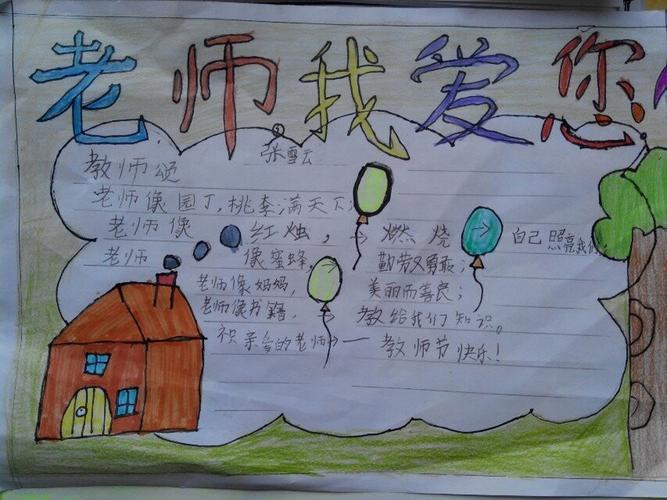 老师我爱您
教师颂 张雪云
老师像园丁,桃李满天下;
老师像红烛,→燃烧→自己照亮我们;
老师像蜜蜂,勤劳又勇敢;
老师像妈妈,美丽而善良;
老师像书籍,教给我们知识。
祝亲爱的老师→—教师节快乐!